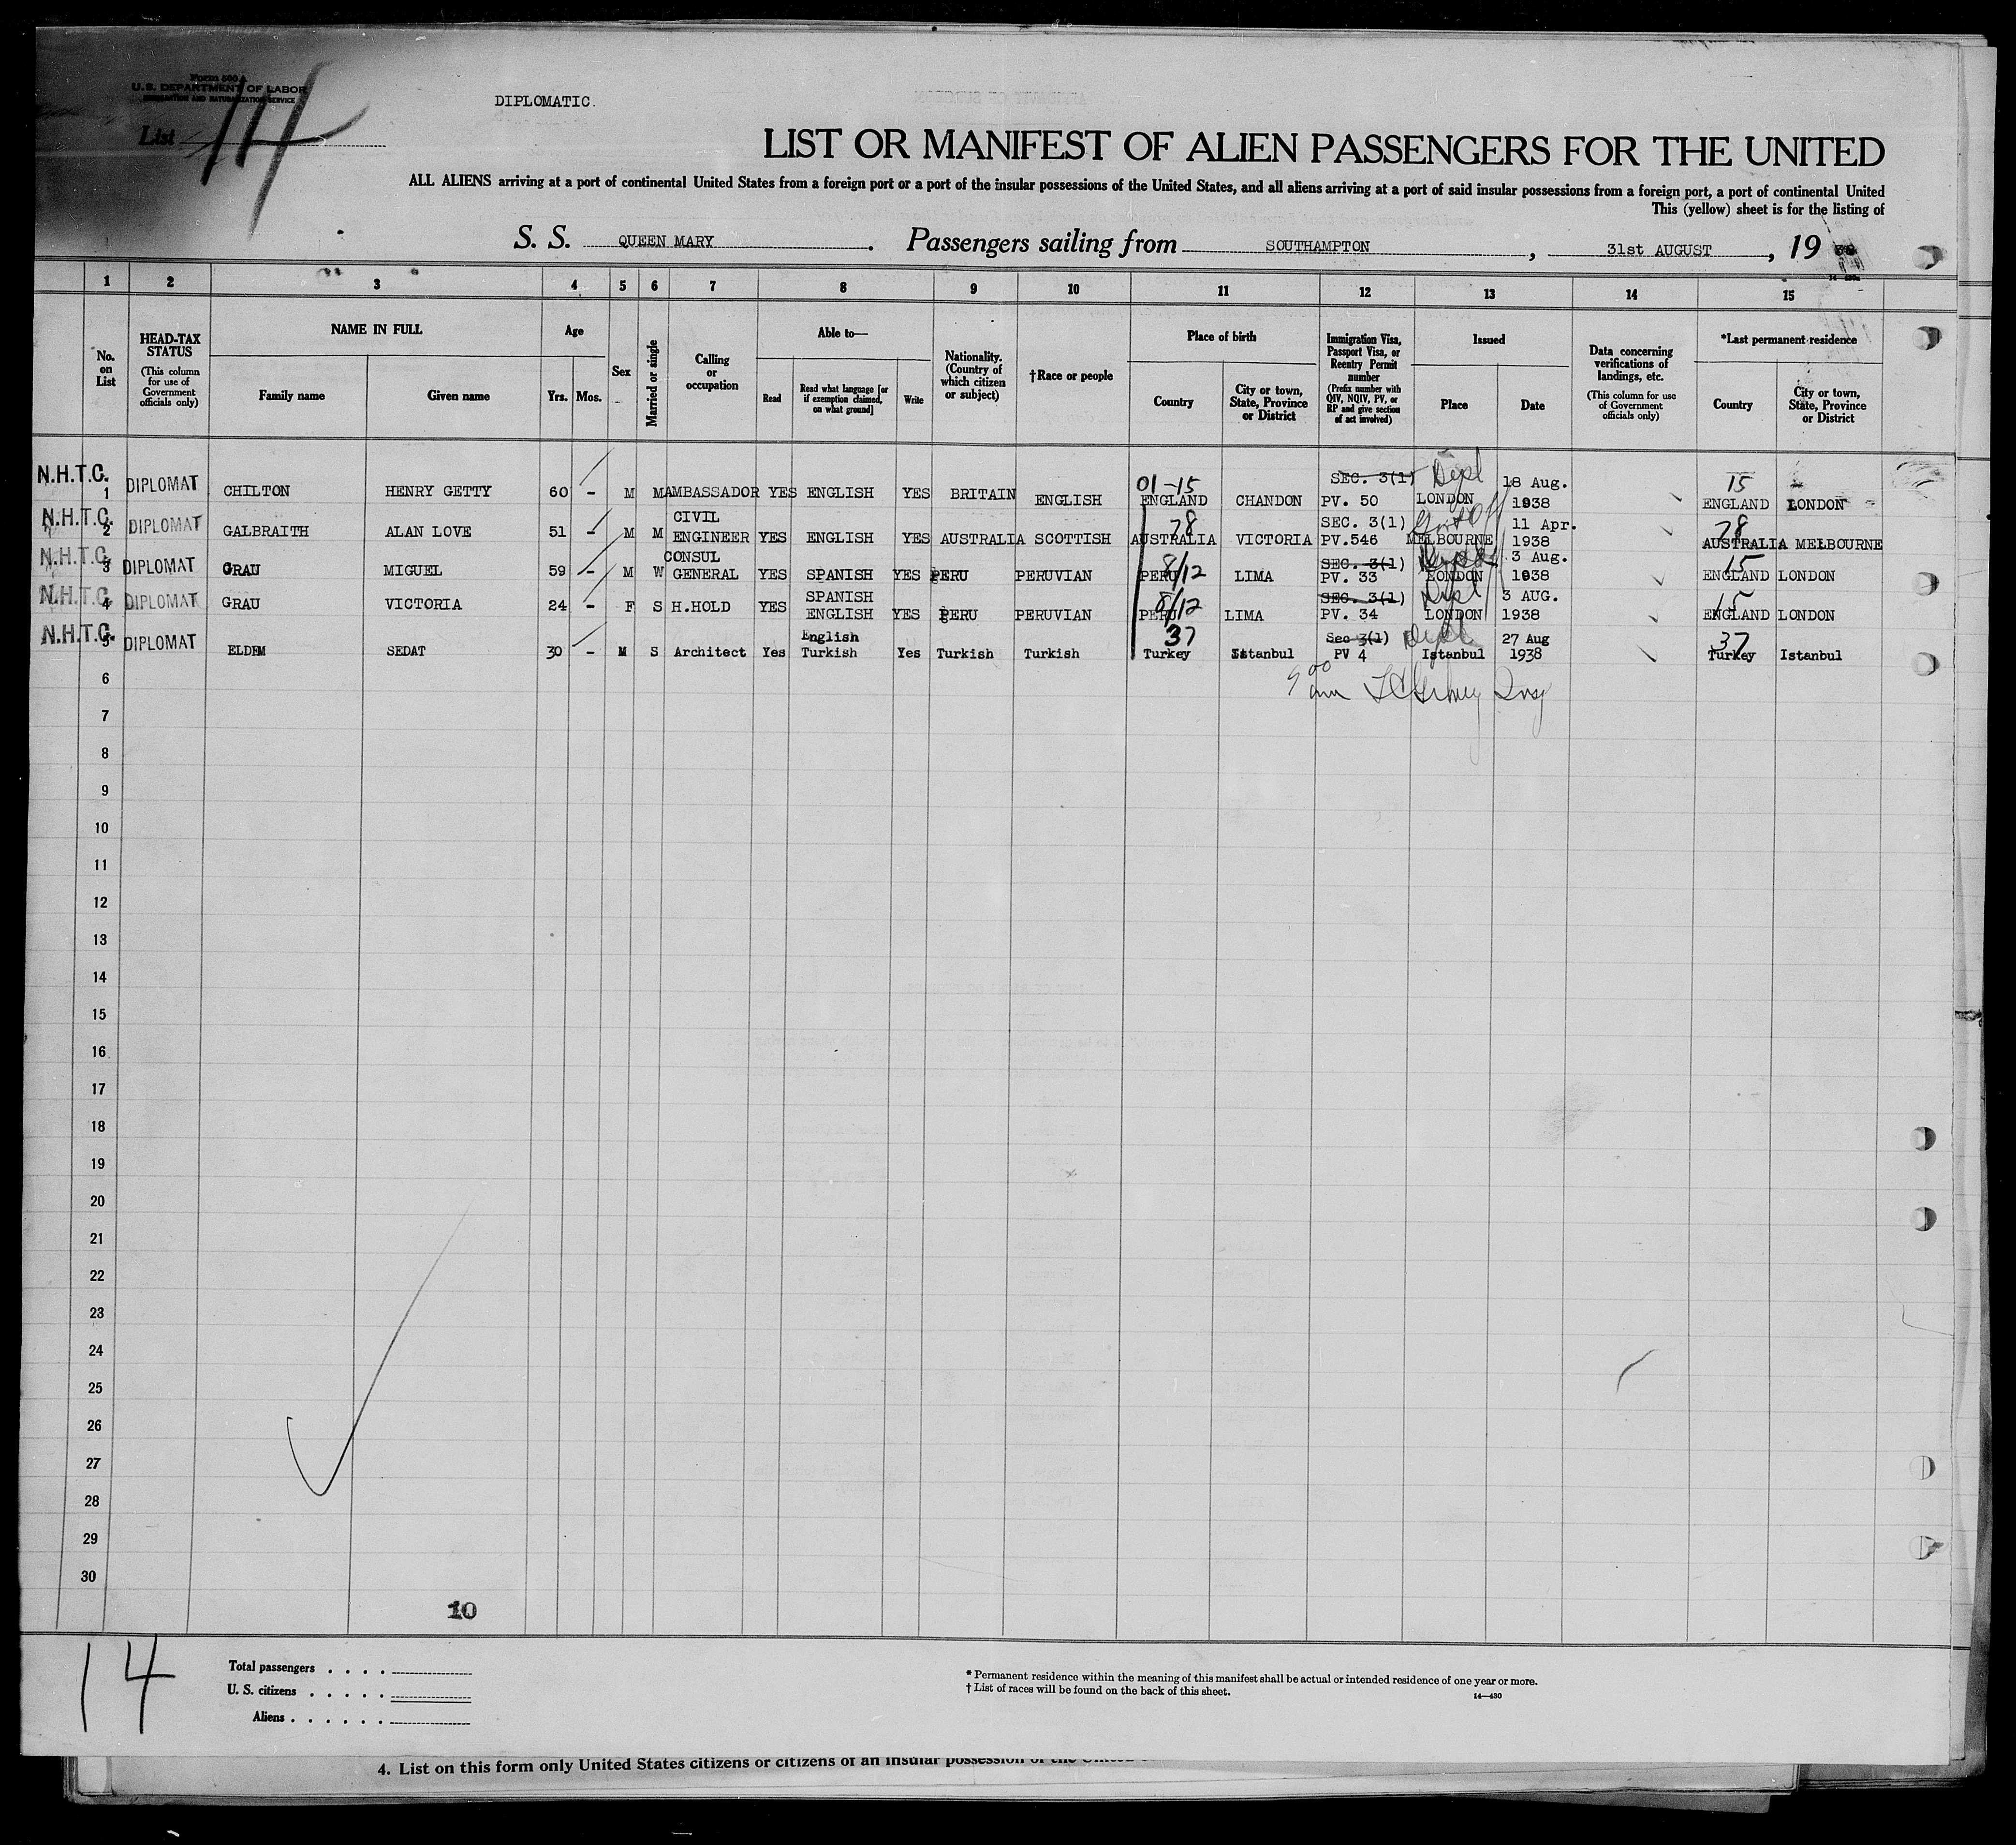 Form 500 A
U.S. DEPARTMENT OF LABOR
IMMIGRATION AND NATURALIZATION SERVICE
List 14
DIPLOMATIC.
LIST OR MANIFEST OF ALIEN PASSENGERS FOR THE UNITED
ALL ALIENS arriving at a port of continental United States from a foreign port or a port of the insular possessions of the United States, and all aliens arriving at a port of said insular possessions from a foreign port, a port of continental United
This (yellow) sheet is for the listing of
S. S. QUEEN MARY. Passengers sailing from SOUTHAMPTON, 31st AUGUST, 19 38
1 2 3 4 5 6 7 8 9 10 11 12 13 14 15
No. on List
HEAD-TAX STATUS (This column for use of Government officials only)
NAME IN FULL
Family name
Given name
Age
Yrs. Mos.
Sex
Married or single
Calling or occupation
Able to—
Read
Read what language [or if exemption claimed, on what ground]
Write
Nationality. (Country of which citizen or subject)
†Race or people
Place of birth
Country
City or town, State, Province or District
Immigration Visa, Passport Visa, or Reentry Permit number (Prefix number with QIV, NQIV, PV, or RP and give section of act involved)
Issued
Place
Date
Data concerning verifications of landings, etc. (This column for use of Government officials only)
*Last permanent residence
Country
City or town, State, Province or District
N.H.T.C. 1 DIPLOMAT CHILTON HENRY GETTY 60 - M M AMBASSADOR YES ENGLISH YES BRITAIN ENGLISH 01-15 ENGLAND CHANDON SEC. 3(1) PV. 50 Dipl LONDON 18 Aug. 1938 15 ENGLAND LONDON
N.H.T.C. 2 DIPLOMAT GALBRAITH ALAN LOVE 51 - M M CIVIL ENGINEER YES ENGLISH YES AUSTRALIA SCOTTISH 78 AUSTRALIA VICTORIA SEC. 3(1) PV.546 MELBOURNE 11 Apr. 1938 78 AUSTRALIA MELBOURNE
N.H.T.C. 3 DIPLOMAT GRAU MIGUEL 59 - M W CONSUL GENERAL YES SPANISH YES PERU PERUVIAN 8/12 PERU LIMA SEC. 3(1) PV. 33 LONDON 3 Aug. 1938 15 ENGLAND LONDON
N.H.T.C. 4 DIPLOMAT GRAU VICTORIA 24 - F S H.HOLD YES SPANISH ENGLISH YES PERU PERUVIAN 8/12 PERU LIMA SEC. 3(1) PV. 34 Dipl LONDON 3 AUG. 1938 15 ENGLAND LONDON
N.H.T.C. 5 DIPLOMAT ELDEM SEDAT 30 - M S Architect Yes English Turkish Yes Turkish Turkish 37 Turkey Istanbul Sec 3(1) PV 4 Dipl Istanbul 27 Aug 1938 37 Turkey Istanbul
6
7
8
9
10
11
12
13
14
15
16
17
18
19
20
21
22
23
24
25
26
27
28
29
30
10
14
Total passengers . . . .
U. S. citizens . . . . .
Aliens . . . . . .
* Permanent residence within the meaning of this manifest shall be actual or intended residence of one year or more.
† List of races will be found on the back of this sheet.
14—430
4. List on this form only United States citizens or citizens of an insular possession of the United